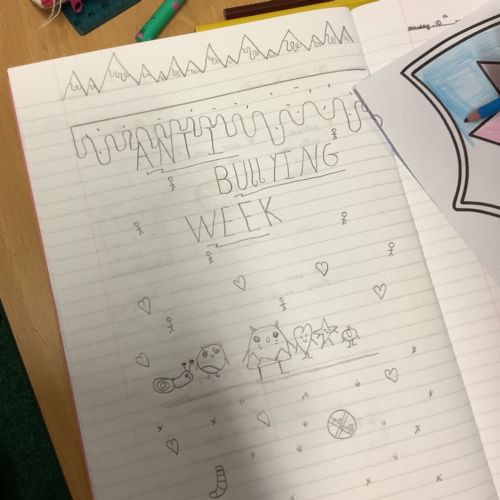 ANTI
BULLYING
WEEK